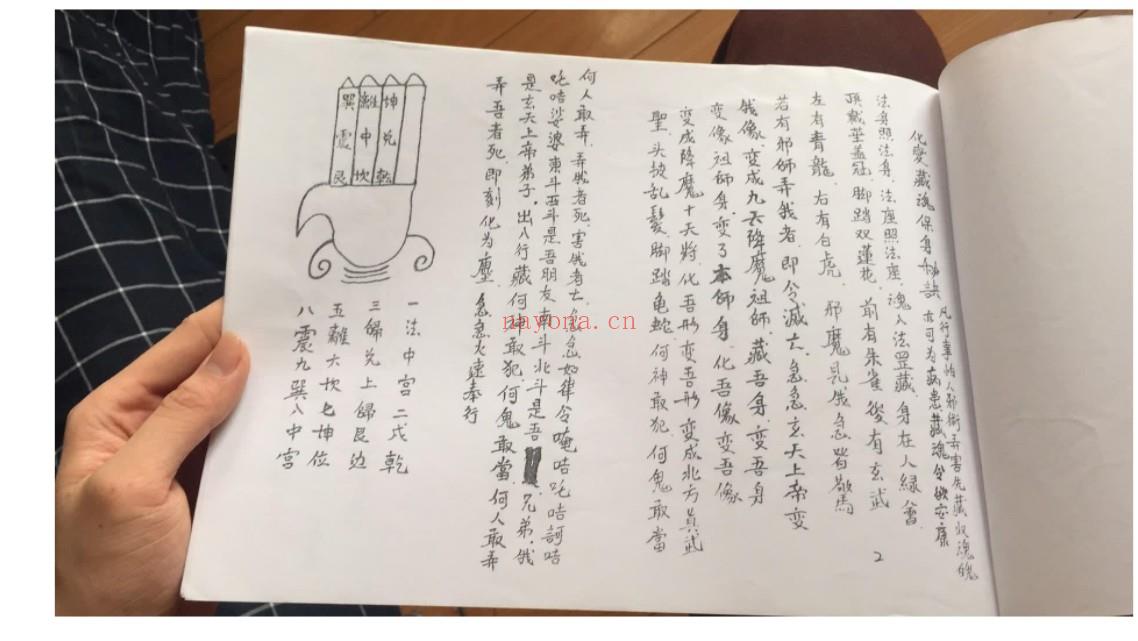 化变藏魂保身秘訣 凡行事怕人邪術弄害先藏收魂魄
亦可为病患藏魂令敬安康
法身照法身，法座照法座，魂入法罡藏，身在人緣會，
頂戴華盖冠，脚踏双蓮花，前有朱雀後有玄武
左有青龍，右有白虎，邪魔見俄急皆敬馬
若有邪師弄我者，即令滅亡，急急玄天上帝变
俄像，变成九天降魔祖師，藏吾身，变吾身
变像祖師身，变了本師身，化吾像变吾像
变成降魔十天将，化吾形变吾形，变成北方真武
聖，头披乱髮，脚踏亀蛇，何神敢犯，何鬼敢當
何人敢弄，弄我者死，害俄者亡，急急如律令唵咭吒咭訶咭
吒咭娑婆東斗西斗是吾朋友南斗北斗是吾兄弟，俄
是玄天上帝弟子，出入行藏何神敢犯，何鬼敢當，何人敢弄
弄吾者死，即刻化为塵，急急火速奉行
巽離坤
震中兑
艮坎乾
一法中宫二戍乾
三歸兑上歸艮边
五離六坎七坤位
八震九巽入中宫
2
nayona.cn